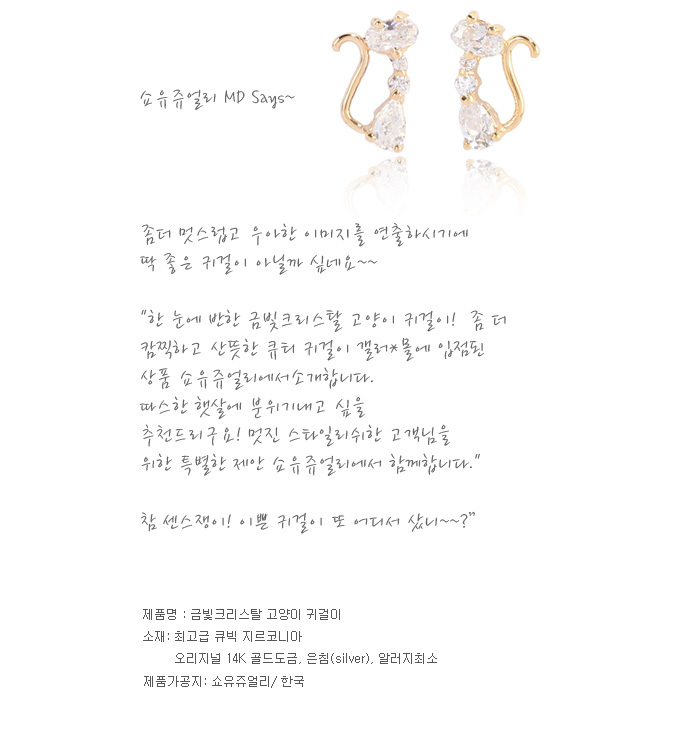 쇼유쥬얼리 MD Says~
좀더 멋스럽고 우아한 이미지를 연출하시기에
딱 좋은 귀걸이 아닐까 싶네요~~
"한 눈에 반한 금빛크리스탈 고양이 귀걸이! 좀 더
캄찍하고 산뜻한 큐티 귀걸이 갤러*몰에 입점된
상품 쇼유쥬얼리에서소개합니다.
따스한 햇살에 분위기내고 싶을
추천드리구요! 멋진 스타일리쉬한 고객님을
위한 특별한 제안 쇼유쥬얼리에서 함께합니다."
참 센스쟁이! 이쁜 귀걸이 또 어디서 샀니~~?"
제품명 : 금빛크리스탈 고양이 귀걸이
소재: 최고급 큐빅 지르코니아
오리지널 14K 골드도금, 은침(silver), 알러지최소
제품가공지: 쇼유쥬얼리/ 한국